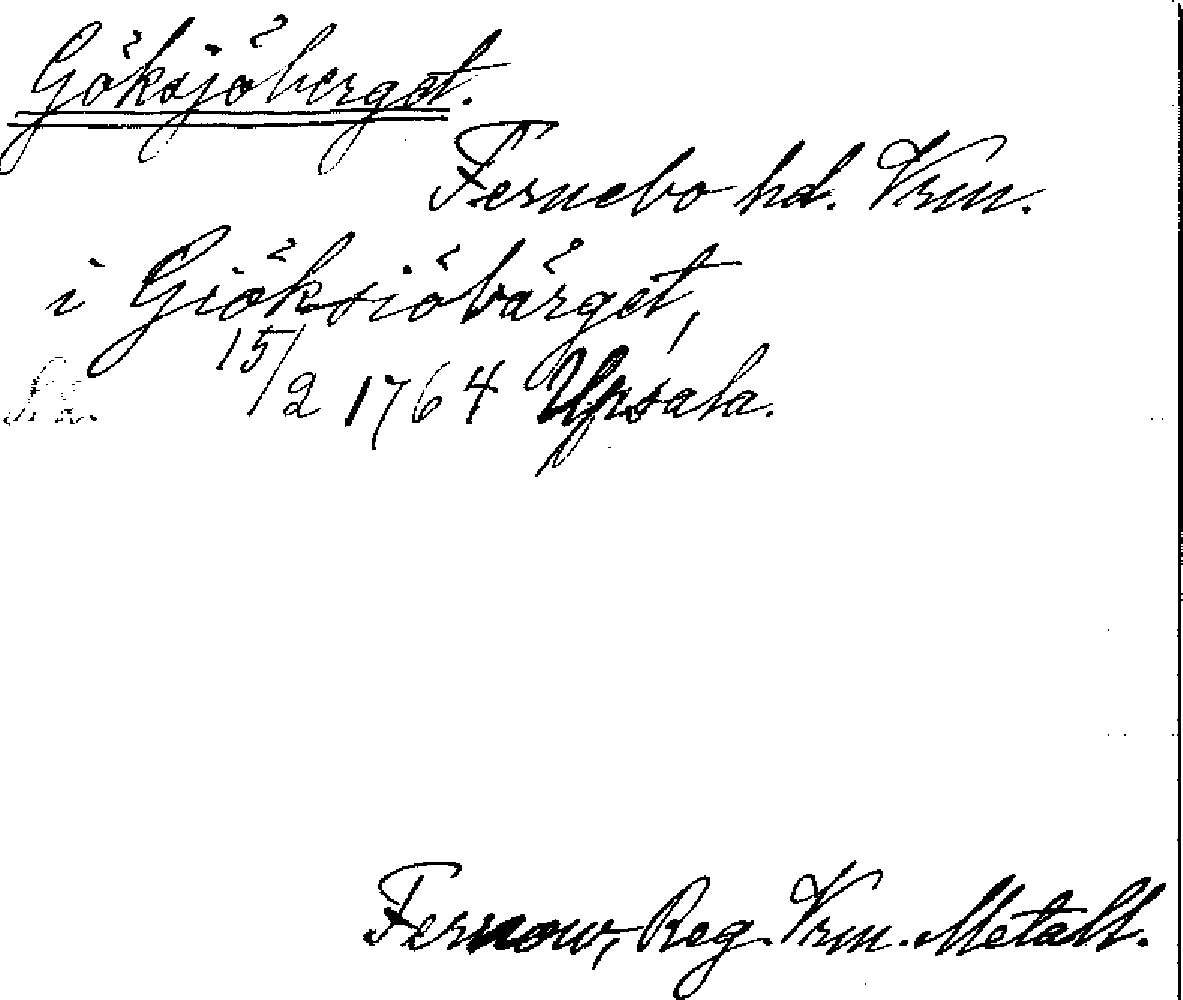 Göksjöberget.
Fernebo hd. Vrm.
i Giöksiöbärget,
15/2 1764 Upsala.
Fernow, Reg. Vrm. Metall.